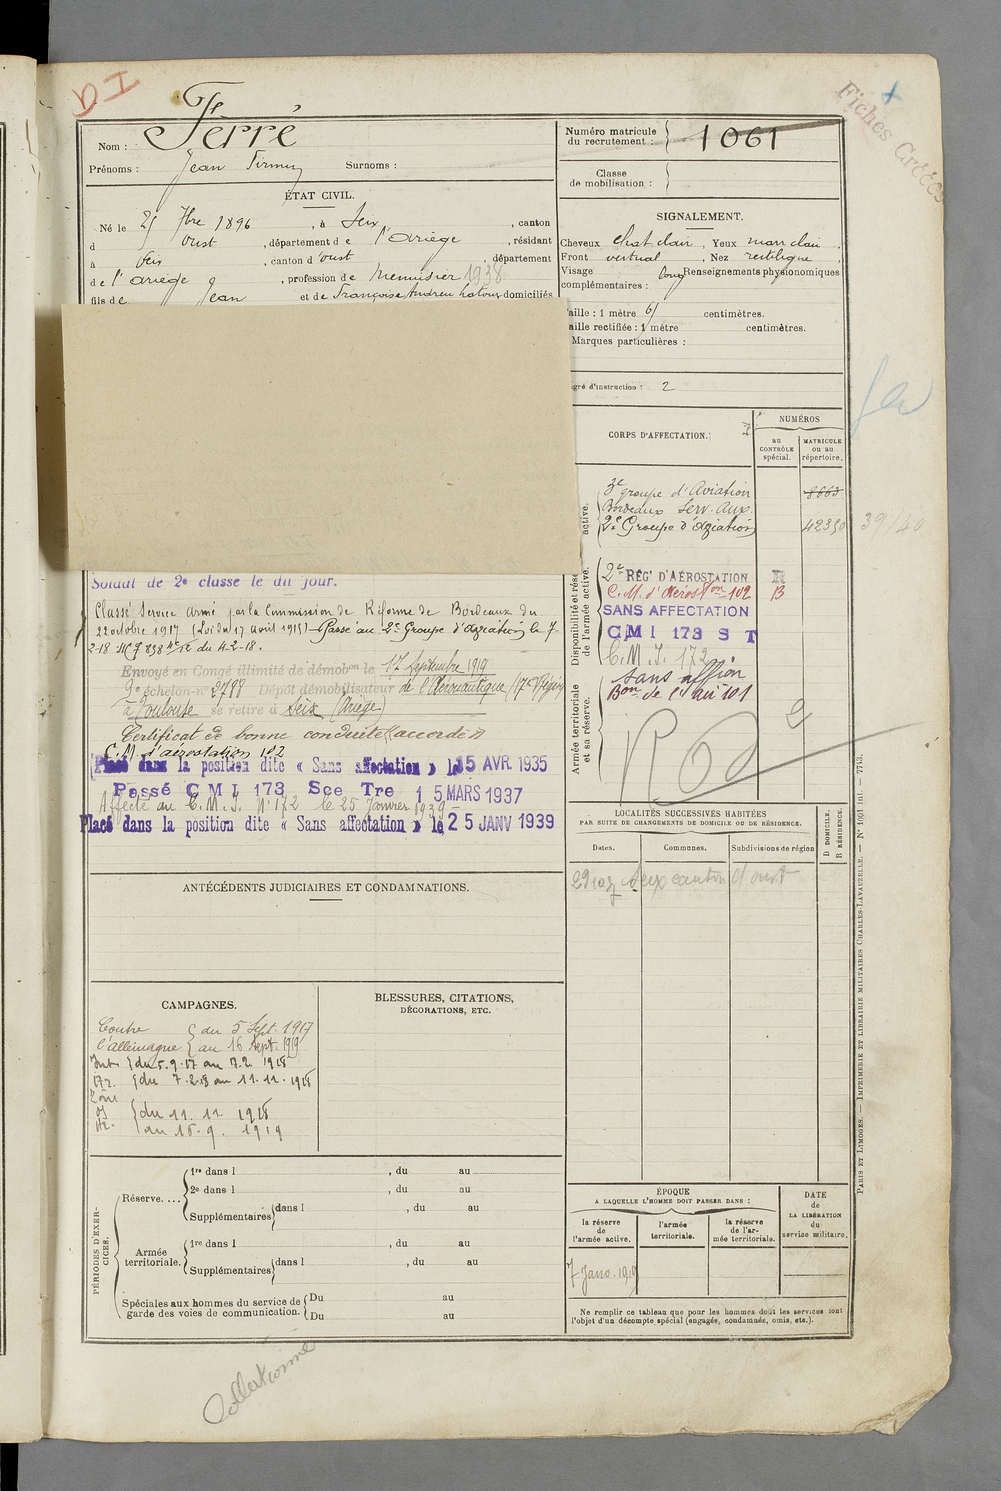 D I
Fiches Créées
Nom : Ferré
Prénoms : Jean Firmin Surnoms :
Numéro matricule du recrutement : 1061
Classe de mobilisation :
ÉTAT CIVIL.
Né le 25 7bre 1896, à Seix, canton
d Oust, département de l'Ariège, résidant
à Seix, canton d'oust, département
de l'ariège, profession de Menuisier 1938
fils de Jean et de Françoise Andreu domiciliés
SIGNALEMENT.
Cheveux chat clair, Yeux mar clair,
Front vertical, Nez rectiligne,
Visage long Renseignements physionomiques
complémentaires :
Taille : 1 mètre 61 centimètres.
Taille rectifiée : 1 mètre centimètres.
Marques particulières :
gré d'instruction : 2
CORPS D'AFFECTATION.
NUMÉROS
au CONTRÔLE spécial.
MATRICULE ou au répertoire.
active.
3e groupe d'Aviation 8663
Bordeaux Serv. Aux.
2e Groupe d'Aviation 42350
39/40
Disponibilité et rése
de l'armée active.
2e RÉGt D'AÉROSTATION R
C. M. d'Aéroston 102 B
SANS AFFECTATION
CMI 173 S T
C. M. I. 172
Sans affion
Armée territoriale
et sa réserve.
Bon de l'Air 101
Soldat de 2e classe le dit jour.
Classé Service armé par la Commission de Réforme de Bordeaux du
22 octobre 1917 (Loi du 17 Août 1915) – Passé au 2e Groupe d'aviation le 7-
2-18 du 4-2-18.
Envoyé en Congé illimité de démobon le 17 Septembre 1919
9e échelon-no 2788 Dépôt démobilisateur de l'Aéronautique (17e Région)
à Toulouse se retire à Seix (Ariège)
Certificat de bonne conduite "accordé"
C. M. d'aérostation 102
Placé dans la position dite « Sans affectation » le 15 AVR. 1935
Passé CMI 173 Sce Tre 15 MARS 1937
Affecté au C. M. I. No 172 le 25 Janvier 1939
Placé dans la position dite « Sans affectation » le 25 JANV 1939
LOCALITÉS SUCCESSIVES HABITÉES
PAR SUITE DE CHANGEMENTS DE DOMICILE OU DE RÉSIDENCE.
D DOMICILE.
R RÉSIDENCE.
Dates. Communes. Subdivisions de région
Seix canton d'oust
ANTÉCÉDENTS JUDICIAIRES ET CONDAMNATIONS.
CAMPAGNES.
Contre l'allemagne
du 5 Sept. 1917
au 16 Sept. 1919
Int. du 5.9.17 au 7.2 1918
du 7.2.18 au 11.11.1918
du 11.11 1918
au 16.9. 1919
BLESSURES, CITATIONS,
DÉCORATIONS, ETC.
PÉRIODES D'EXERCICES.
Réserve....
1re dans l , du au
2e dans l , du au
Supplémentaires dans l , du au
Armée territoriale.
1re dans l , du au
Supplémentaires dans l , du au
Spéciales aux hommes du service de
garde des voies de communication.
Du au
Du au
ÉPOQUE
A LAQUELLE L'HOMME DOIT PASSER DANS :
la réserve de l'armée active.
l'armée territoriale.
la réserve de l'armée territoriale.
DATE de LA LIBÉRATION du service militaire.
7 Janv. 1919
Ne remplir ce tableau que pour les hommes dont les services sont
l'objet d'un décompte spécial (engagés, condamnés, omis, etc.).
PARIS ET LIMOGES. — IMPRIMERIE ET LIBRAIRIE MILITAIRES CHARLES-LAVAUZELLE. — No 1001 int. — 7713.
Collationné